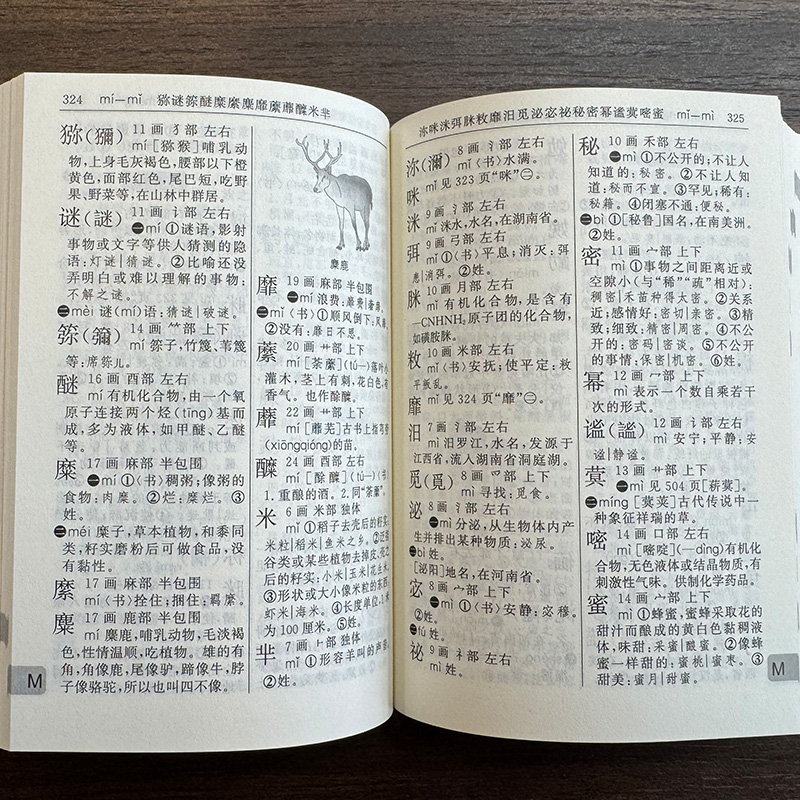 324 mí—mǐ 猕谜䉲醚糜縻麋靡蘼蘼醾米芈
猕(獼) 11 画 犭部 左右
mí [猕猴]哺乳动
物,上身毛灰褐色,腰部以下橙
黄色,面部红色,尾巴短,吃野
果、野菜等,在山林中群居。
谜(謎) 11 画 讠部 左右
㊀mí ①谜语,影射
事物或文字等供人猜测的隐
语:灯谜|猜谜。②比喻还没
弄明白或难以理解的事物:
不解之谜。
㊁mèi 谜(mí)语:猜谜|破谜。
14 画 ⺮部 上下
竹篾、苇篾
等:席
醚 16 画 酉部 左右
mí 有机化合物,由一个氧
原子连接两个烃(tīng)基而
成,多为液体,如甲醚、乙醚
等。
糜 17 画 麻部 半包围
㊀mí ①〈书〉稠粥;像粥的
食物:肉糜。②烂:糜烂。③
姓。
㊁méi 糜子,草本植物,和黍同
类,籽实磨粉后可做食品,没
有黏性。
縻 17 画 麻部 半包围
mí〈书〉拴住;捆住:羁縻。
麋 17 画 鹿部 半包围
mí 麋鹿,哺乳动物,毛淡褐
色,性情温顺,吃植物。雄的有
角,角像鹿,尾像驴,蹄像牛,脖
子像骆驼,所以也叫四不像。
M
麋鹿
靡 19 画 麻部 半包围
㊀mí 浪费:靡费|奢靡。
㊁mǐ〈书〉①顺风倒下:风靡。
②没有:靡日不思。
蘼 20 画 艹部 上下
mí [荼蘼](tú—)落叶小
灌木,茎上有刺,花白色,有
香气。也作酴醾。
蘼 22 画 艹部 上下
mí [蘼芜]古书上指芎䓖
(xiōngqióng)的苗。
醾 24 画 酉部 左右
mí [酴醾](tú—)〈书〉
1.重酿的酒。2.同“荼蘼”。
米 6 画 米部 独体
mǐ ①稻子去壳后的籽实:
米粒|稻米|鱼米之乡。②泛指
谷类或某些植物去掉皮、壳之
后的籽实:小米|玉米|花生米。
③形状或大小像米粒的东西:
虾米|海米。④长度单位,1米
为 100 厘米。⑤姓。
芈 7 画 ⺊部 独体
mǐ ①形容羊叫的声音。
②姓。
沵咪洣弭脒敉靡汨觅泌宓祕秘密幂谧蓂嘧蜜 mǐ—mì 325
沵(濔) 8 画 氵部 左右
mǐ〈书〉水满。
咪 mǐ 见 323 页“咪”㊁。
洣 9 画 氵部 左右
mǐ 洣水,水名,在湖南省。
弭 9 画 弓部 左右
mǐ ①〈书〉平息;消灭:弭
患|消弭。②姓。
脒 10 画 月部 左右
mǐ 有机化合物,是含有
—CNHNH₂原子团的化合物,
如磺胺脒。
敉 10 画 米部 左右
mǐ〈书〉安抚;使平定:敉
平叛乱。
靡 mǐ 见 324 页“靡”㊁。
汨 7 画 氵部 左右
mì 汨罗江,水名,发源于
江西省,流入湖南省洞庭湖。
觅(覓) 8 画 爫部 上下
mì 寻找:觅食。
泌 8 画 氵部 左右
㊀mì 分泌,从生物体内产
生并排出某种物质:泌尿。
㊁bì 姓。
[泌阳]地名,在河南省。
宓 8 画 宀部 上下
㊀mì ①〈书〉安静:宓穆。
②姓。
㊁fú 姓。
祕 9 画 礻部 左右
mì 姓。
秘 10 画 禾部 左右
㊀mì ①不公开的;不让人
知道的:秘密。②不让人知
道:秘而不宣。③罕见;稀有:
秘籍。④闭塞不通:便秘。
㊁bì ①[秘鲁]国名,在南美洲。
②姓。
密 11 画 宀部 上下
mì ①事物之间距离近或
空隙小(与“稀”“疏”相对):
稠密|禾苗种得太密。②关系
近;感情好:密切|亲密。③精
致;细致:精密|周密。④不公
开的:密码|密谈。⑤不公开
的事情:保密|机密。⑥姓。
幂 12 画 冖部 上下
mì 表示一个数自乘若干
次的形式。
谧(謐) 12 画 讠部 左右
mì 安宁;平静:安
谧|静谧。
蓂 13 画 艹部 上下
㊀mì 见 504 页[菥蓂]。
㊁míng [蓂荚]古代传说中一
种象征祥瑞的草。
嘧 14 画 口部 左右
mì [嘧啶](—dìng)有机化
合物,无色液体或结晶物质,有
刺激性气味。供制化学药品。
蜜 14 画 宀部 上下
mì ①蜂蜜,蜜蜂采取花的
甜汁而酿成的黄白色黏稠液
体,味甜:采蜜|酿蜜。②像蜂
蜜一样甜的:蜜桃|蜜枣。③
甜美:蜜月|甜蜜。
M